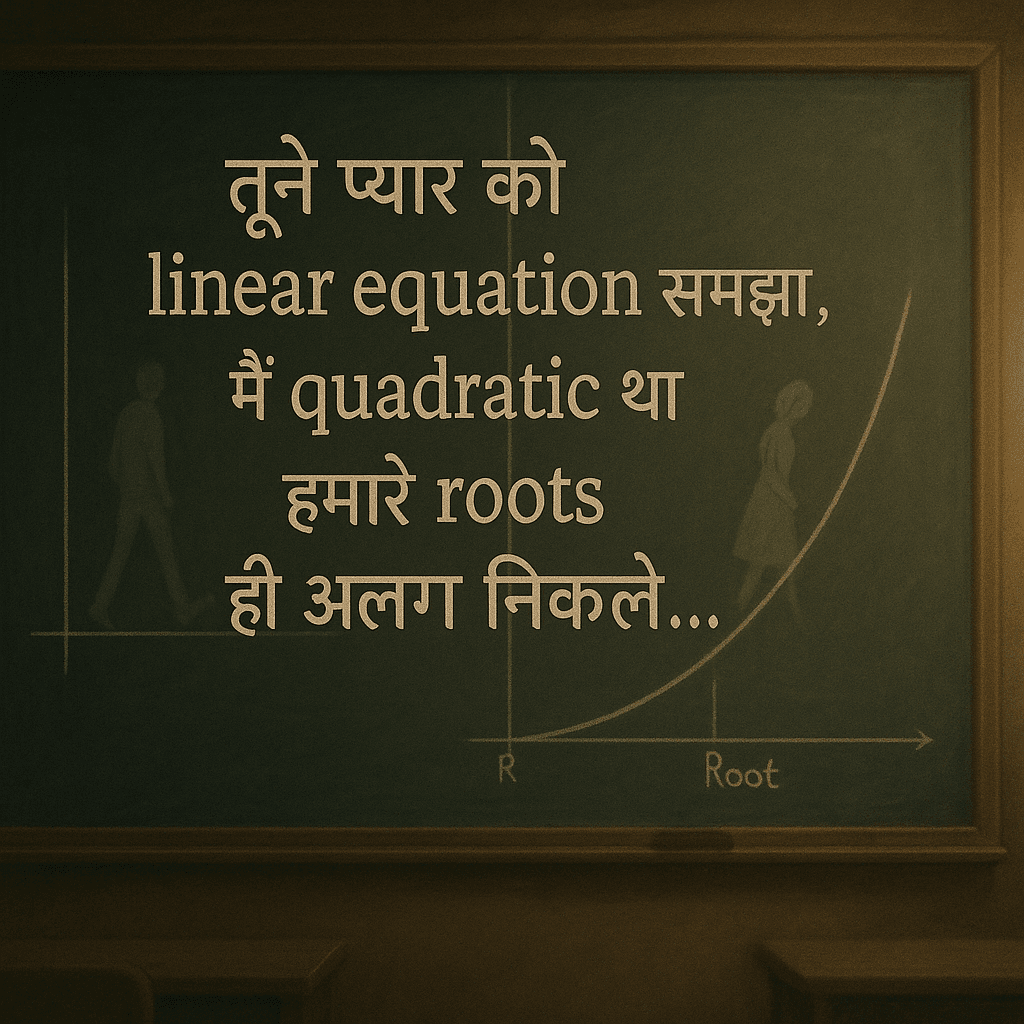 तूने प्यार को
linear equation समझा,
मैं quadratic था
हमारे roots
ही अलग निकले...
R
Root